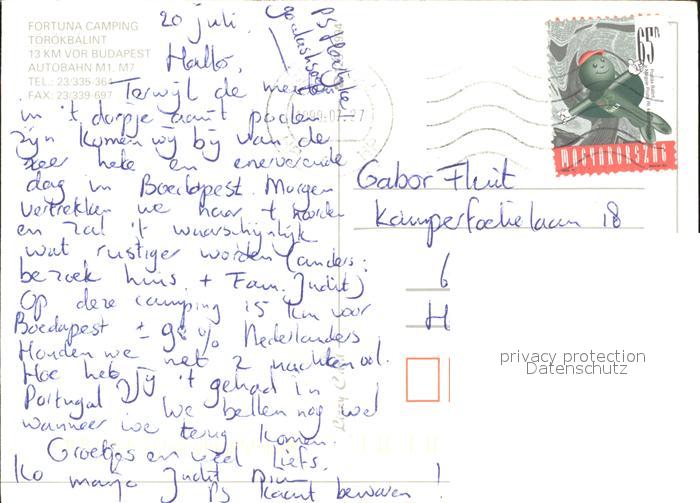 FORTUNA CAMPING
TÖRÖKBÁLINT
13 KM VOR BUDAPEST
AUTOBAHN M1, M7
TEL.: 23/335-364
FAX: 23/339-697
20 juli.
Hallo,
Terwijl de meiden
in 't dorpje aan't poolen
zijn komen wij bij van de
zeer hete en enerverende
dag in Boedapest. Morgen
vertrekken we naar 't noorden
en zal 't waarschijnlijk
wat rustiger worden (anders:
bezoek huis + Fam. Judit)
Op deze camping 15 km voor
Boedapest ± 98% Nederlanders
Houden we net 2 nachten vol.
Hoe heb jij 't gehad in
Portugal? We bellen nog wel
wanneer we terug komen.
Groetjes en veel liefs,
Ko Judit
PS kaart bewaren!
PS Hartelijke
65Ft
MAGYARORSZÁG
Gabor Fluit
Kamperfoelielaan 18
6
H
privacy protection
Datenschutz